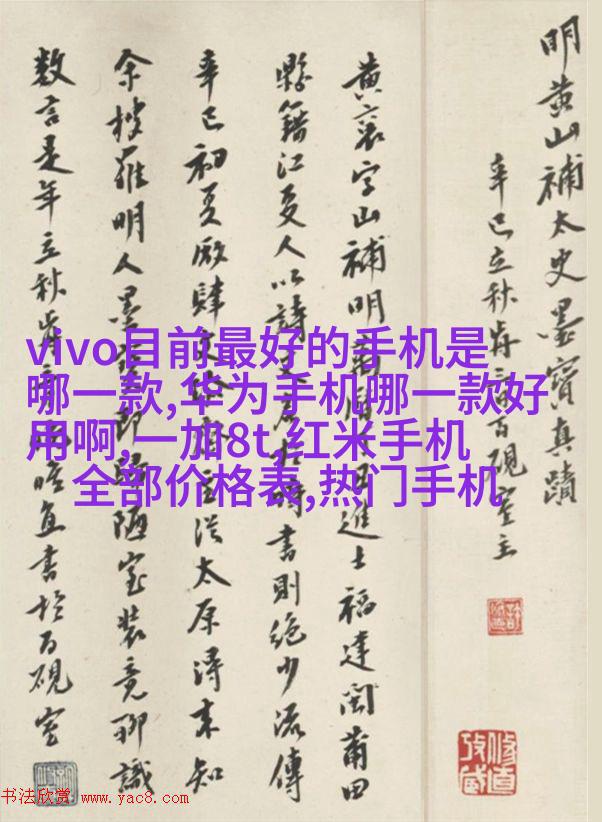 明黄山補太史墨寶真蹟
辛巳立秋歬三百硯室主
黄襄字山補明進士福建閩莆田
縣籍江夏人以詩時書則絶少流傳
辛巳初夏厰肆主從太原得來知
余搜羅明人墨即陋室裝竟聊識
數言是年立秋歬書於百硯室
vivo目前最好的手机是
哪一款,华为手机哪一款好
用啊,一加8t,红米手机
全部价格表,热门手机
书法欣赏 www.yac8.com